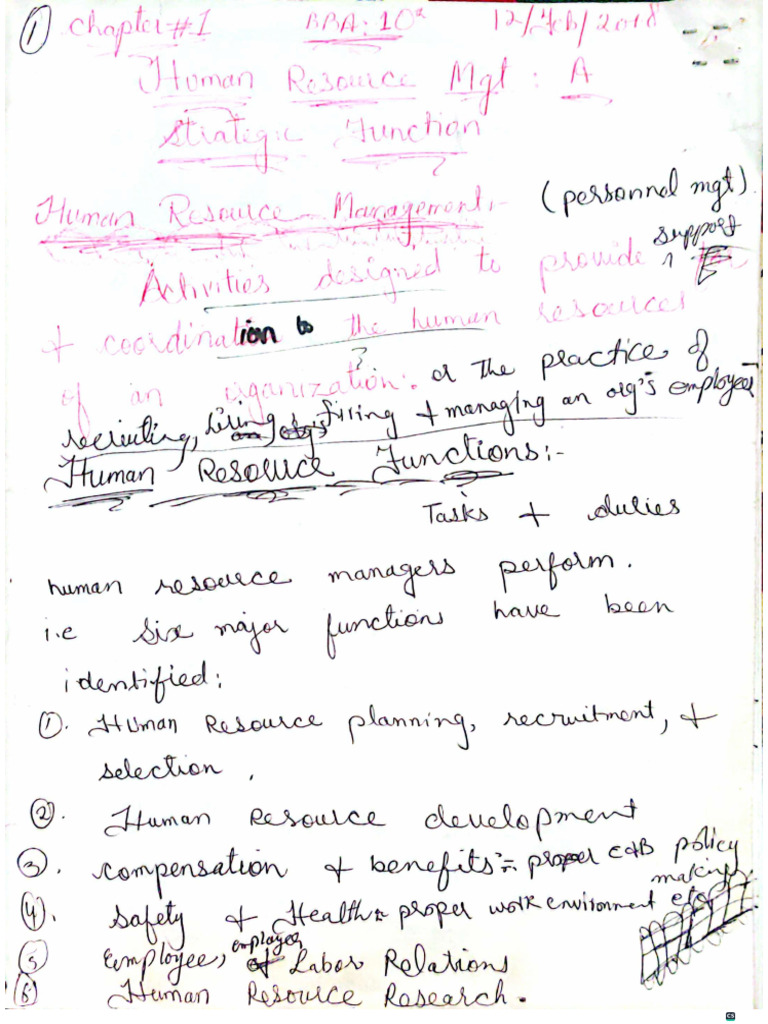 ① Chapter #1 BBA: 10th 12/Feb/2018
Human Resource Mgt : A
Strategic Function
Human Resource Management:- (personnel mgt)
support
Activities designed to provide
+ coordination to the human resources
of an organization. or The practice of
recruiting, hiring, firing + managing an org's employees
Human Resource Functions:-
Tasks + duties
human resource managers perform.
i.e six major functions have been
identified:
①. Human Resource planning, recruitment, +
selection.
②. Human Resource development
③. compensation + benefits:= proper C&B policy
making
④. Safety + Health:= proper work environment etc
employee
⑤ Employee, Labor Relations
⑥ Human Resource Research.
CS